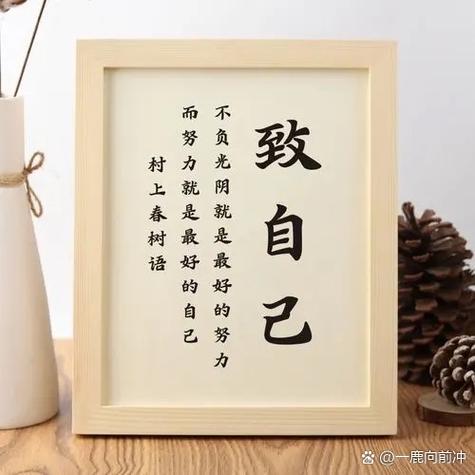 致自己
不负光阴就是最好的努力
而努力就是最好的自己
村上春树语
一鹿向前冲